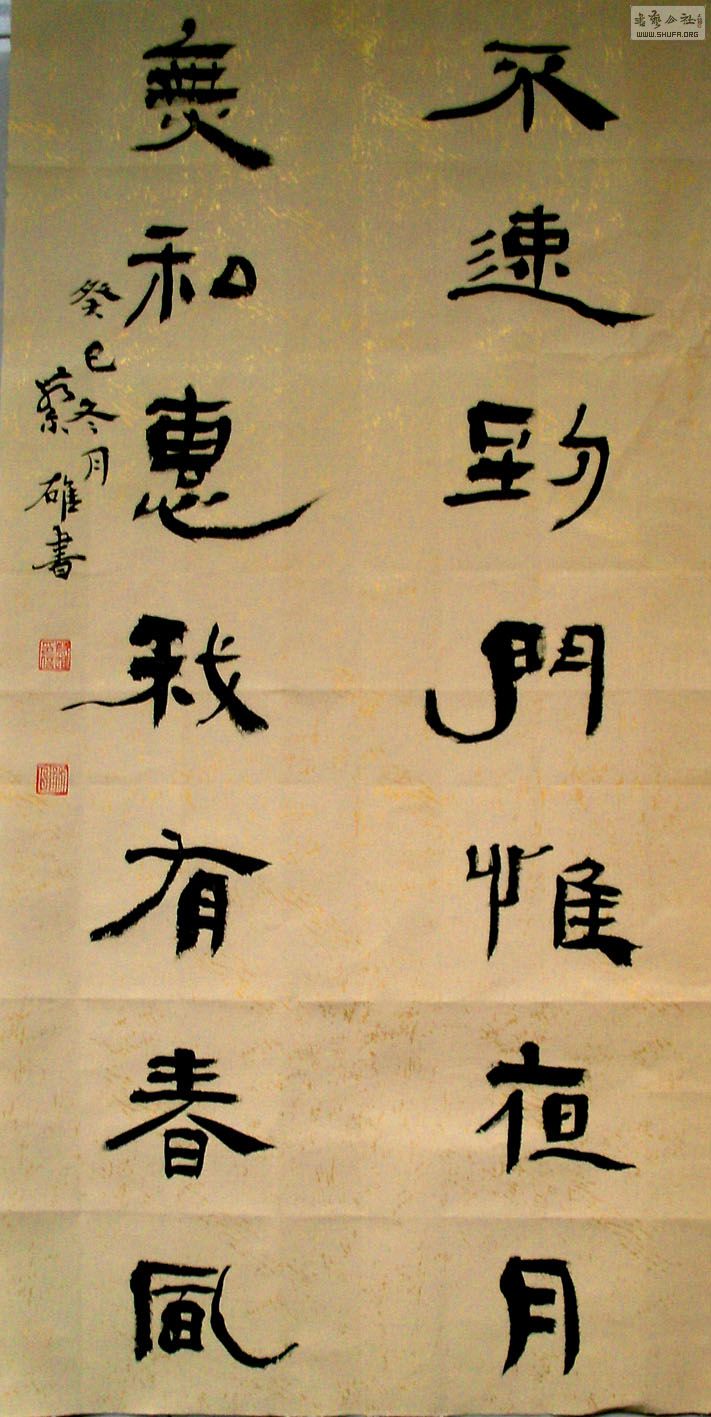 不速到門惟夜月
無私惠我有春風
癸巳冬月
蔡雄書
書藝公社
WWW.SHUFA.ORG